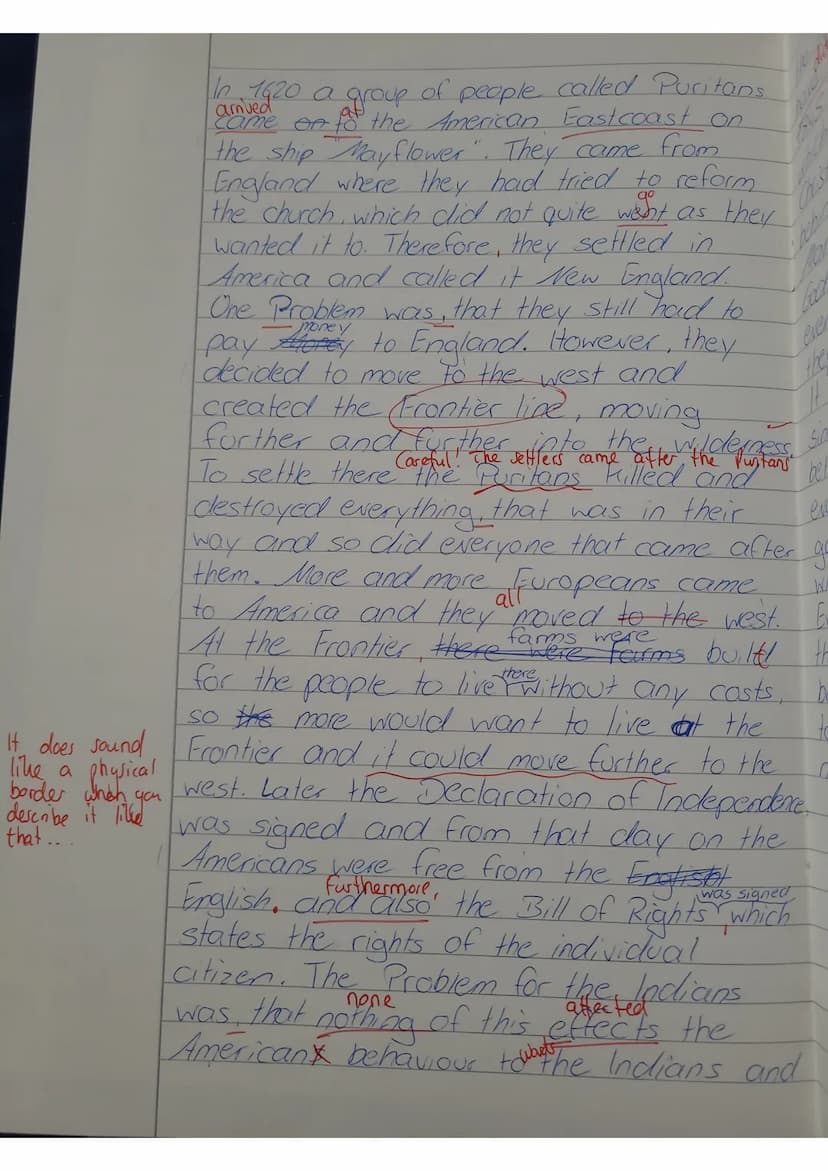 In 1620 a group of people called Puritans
arrived at
came on to the American Eastcoast on
the ship "Mayflower". They came from
England where they had tried to reform
go
the church, which did not quite went as they
wanted it to. Therefore, they settled in
America and called it New England.
One Problem was, that they still had to
money
pay to England. However, they
decided to move to the west and
created the Frontier line, moving
further and further into the wilderness.
Careful! The settlers came after the Puritans
To settle there the Puritans killed and
destroyed everything, that was in their
way and so did everyone that came after
them. More and more Europeans came
all
to America and they moved to the west.
farms were
At the Frontier, there were farms built
there
for the people to live without any costs,
so the more would want to live at the
Frontier and it could move further to the
It does sound
like a physical
border when you
describe it like
that...
west. Later the Declaration of Independence
was signed and from that day on the
Americans were free from the English
furthermore, was signed
English. and also the Bill of Rights, which
states the rights of the individual
citizen. The Problem for the Indians
none affected
was, that nothing of this effects the
wards
Americans behaviour to the Indians and